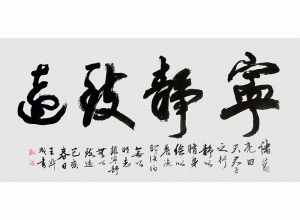 寧靜致遠
諸葛
亮曰
夫君子
之行
靜以
脩身
儉以
養德
非淡泊
無以
明志
非寧靜
無以
致遠
己亥
春日